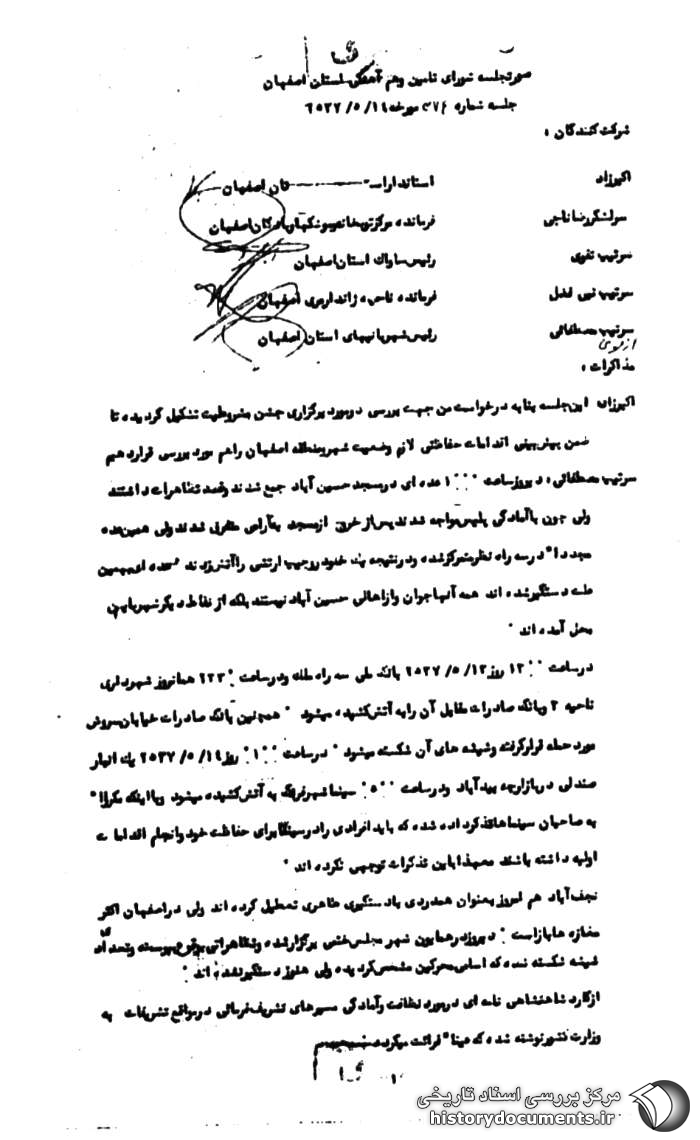 صورتجلسه شورای تامین وهم آهنگی استان اصفهان
جلسه شماره ۳۷۴ مورخه ۲۵۳۷/۵/۱۴
شرکت کنندگان :
اکبرزاد استاندار استان اصفهان
سرلشگر رضا ناجی فرمانده مرکز توپخانه وموشکها وپادگان اصفهان
سرتیپ تقوی رئیس ساواک استان اصفهان
سرتیپ نبی فضل فرمانده ناحیه ژاندارمری اصفهان
سرتیپ مصطفائی رئیس شهربانیهای استان اصفهان
مذاکرات :
اکبرزاد این جلسه بنا به درخواست من جهت بررسی درمورد برگزاری جشن مشروطیت تشکیل گردیده تا
ضمن پیش بینی اقدامات حفاظتی لازم وضعیت شهرومنطقه اصفهان راهم مورد بررسی قراردهیم
سرتیپ مصطفائی : دیروزساعت ۱۰۰۰ عده ای درمسجد حسین آباد جمع شدند وقصد تظاهرات داشتند
ولی چون باآمادگی پلیس مواجه شدند پس از خروج ازمسجد بآرامی متفرق شدند ولی همین عده
مجددا" درسه راه نظرمتمرکزشده ودرنتیجه یک خودروجیپ ارتشی راآتش زدند عده ای بهمین
علت دستگیرشده اند همه آنهاجوان وازاهالی حسین آباد نیستند بلکه از نقاط دیگرشهرباین
محل آمده اند .
درساعت ۱۲۰۰ روز ۲۵۳۷/۵/۱۳ بانک ملی سه راه ودرساعت ۲۲۳۰ همانروز شهرداری
ناحیه ۲ وبانک صادرات مقابل آن رابه آتش کشیده میشود . همچنین بانک صادرات خیابان سروش
مورد حمله قرارگرفته وشیشه های آن شکسته میشود . درساعت روز ۲۵۳۷/۵/۱۴ یک انبار
صندلی دربازارچه بیدآباد ودرساعت سینما شهرفرنگ به آتش کشیده میشود وبااینکه مکررا"
به صاحبان سینماهاتذکرداده شده که باید افرادی رادرسینمابرای حفاظت خود وانجام اقدامات
اولیه داشته باشند معهذا باین تذکرات توجهی نکرده اند .
نجف آباد هم امروز بعنوان همدردی بادستگیری طاهری تعطیل کرده اند ولی دراصفهان اکثر
مغازه هابازاست . دیروزدرهمایون شهر مجلس ختمی برگزارشده وتظاهراتی بوقوع پیوسته وتعدادی
شیشه شکسته شده که اسامی محرکین مشخص گردیده ولی هنوز دستگیرنشده اند .
ازگارد شاهنشاهی نامه ای درمورد نظافت وآمادگی مسیرهای تشریف فرمائی درمواقع تشریفات به
وزارت کشورنوشته شده که عینا" قرائت میگردد
مرکز بررسی اسناد تاریخی
historydocuments.ir